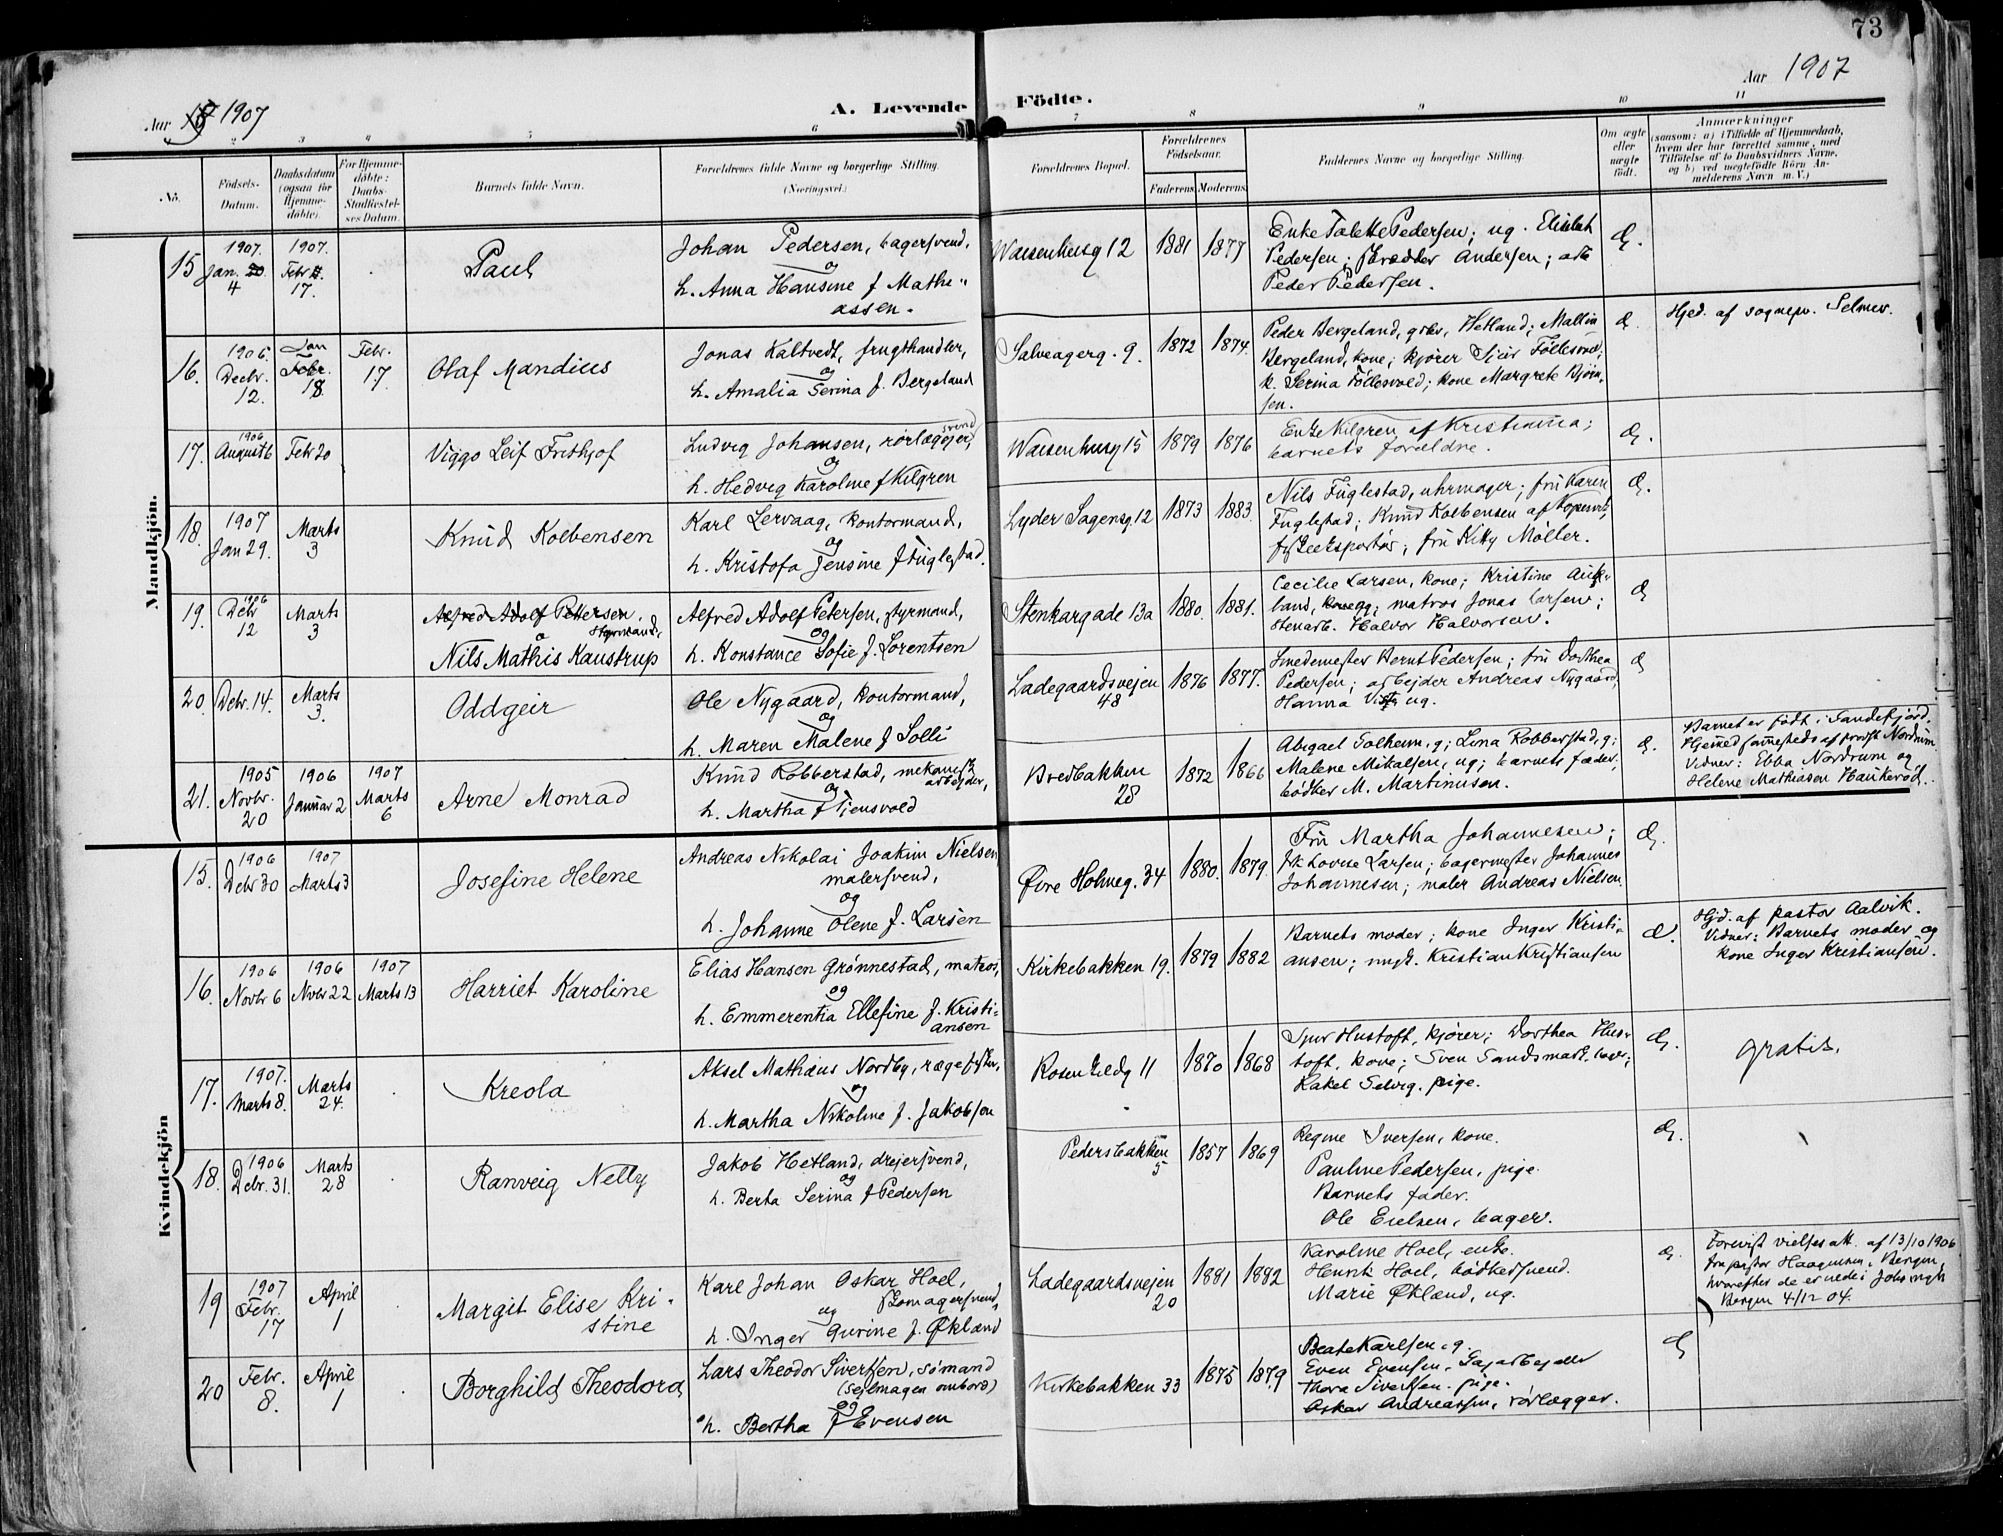 73
Aar 1907
A. Levende Födte.
Aar 1907
2 3 4 5 6 7 8 9 10 11
No.
Födsels-Datum.
Daabsdatum (ogsaa for Hjemme-döbte).
For Hjemme-döbte: Daabs-Stadfæstel-ses Datum.
Barnets fulde Navn.
Forældrenes fulde Navne og borgerlige Stilling. (Næringsvei.)
Forældrenes Bopæl.
Forældrenes Födselsaar.
Faderens. Moderens.
Faddernes Navne og borgerlige Stilling.
Om ægte eller uægte födt.
Anmærkninger
(saasom: a) i Tilfælde af Hjemmedaab, hvem der har forrettet samme, med Tilföielse af to Daabsvidners Navne, og b) ved uægtefödte Börn An-melderens Navn m. V.)
Mandkjön.
15 1907. Jan. 4 1907. Febr 17. Paul
Johan Pedersen, bagersvend,
og
h. Anna Hansine f Mathe-
assen.
Waisenhusg 12 1881 1877
Enke Talette Pedersen; ug. Elisabet
Pedersen; Skrædder Andersen; arb
Peder Pedersen.
Æ.
16. 1906. Decbr. 12. Jan 18. Febr. 17. Olaf Mandius
Jonas Kaltvedt, frugthandler,
og
h. Amalia Serina f. Bergeland
Salvagerg. 9. 1872 1874.
Peder Bergeland, grbr, Hetland; Mallin
Bergeland, kone; kjører Sjur Föllesvold;
k. Serina Föllesvold; kone Margrete Bjørn-
sen.
Æ.
Hjd. af sognepr. Selmer.
17. 1906 August 6 Febr 20 Viggo Leif Fridhjof
Ludvig Johansen, rørlæggersvend,
og
h. Hedvig Karoline f Kilgren
Waisenhusg 15 1879 1876
Enke Kilgren af Kristiania;
barnets forældre.
Æ.
18. 1907 Jan 29. Marts 3 Knud Kolbensen
Karl Lervaag, kontormand,
og
h. Kristofa Jensine f Fuglestad.
Lyder Sagensg. 12 1873 1883.
Nils Fuglestad, uhrmager; fru Karen
Fuglestad; Knud Kolbensen af Kopervik,
fiskeeksportør; fru Kitty Møller.
Æ.
19. 1906 Debr 12 Marts 3
Alfred Adolf Petersen, Styrmand,
Nils Mathis Kaustrup
Alfred Adolf Petersen, styrmand,
og
h. Konstance Sofie f. Lorentsen
Stenkargade 13a 1880. 1881.
Cecilie Larsen, kone; Kristine Auk-
land, ug; matros Jonas Larsen;
stenarb. Halvor Halvorsen.
Æ
20. Debr. 14. Marts 3. Oddgeir
Ole Nygaard, kontormand,
og
h. Maren Malene f Solli
Ladegaardsvejen 48 1876 1877.
Smedemester Bernt Pedersen; fru Dorthea
Pedersen; arbejder Andreas Nygaard;
Hanna ug.
Æ
21. 1905 Novbr. 20 1906 Januar 2 1907 Marts 6 Arne Monrad
Knud Robberstad, mekanisk arbejder,
og
h. Martha f Tjensvold
Bredbakken 28 1872 1866
Abigael Solheim, g; Lina Robberstad, g;
Malene Mikalsen, ug; barnets fader;
bødker M. Martinusen.
Æ.
Barnet er født i Sandefjord.
Hjemmed sammesteds af provst Nordrum
Vidner: Ebba Nordrum og
Helene Mathiasen Haukerød.
Kvindekjön
15. 1906 Debr 30 1907 Marts 3 Josefine Helene
Andreas Nikolai Joakim Nielsen
malersvend,
og
h. Johanne Olene f. Larsen
Øvre Holmeg. 34 1880. 1879.
Fru Martha Johannesen;
frk Lovise Larsen; bagermester Johannes
Johannesen; maler Andreas Nielsen.
Æ.
16. 1906 Novbr 6 1906 Novbr 22 1907 Marts 13 Harriet Karoline
Elias Hansen Grønnestad, matros,
og
h. Emmerentia Ellefine f. Kristi-
ansen
Kirkebakken 19. 1879 1882
Barnets moder; kone Inger Kristi-
ansen; ungk. Kristian Kristiansen
Æ.
Hjd. af pastor Aalvik.
Vidner: Barnets moder og
kone Inger Kristiansen.
17. 1907. Marts 8. Marts 24. Kreola
Aksel Mathæus Nordby, rægefisker,
og
h. Martha Nikoline f. Jakobsen
Rosenkildg 11 1870 1868
Sjur Hustoft, kjører; Dorthea Hus-
toft, kone; Sven Sandsmark, bager;
Rakel Selvig, pige.
Æ.
gratis.
18. 1906 Debr. 31. Marts 28 Ranveig Nelly
Jakob Hetland, drejersvend,
og
h. Berta Serina f Pedersen
Pedersbakken 5 1857 1869
Regine Iversen, kone.
Pauline Pedersen, pige.
Barnets fader.
Ole Eielsen, bager.
Æ.
19 1907 Febr. 17 April 1 Margit Elise Kri-
stine
Karl Johan Oskar Hoel,
skomagersvend,
og
h. Inger Gurine f. Økland
Ladegaardsvejen 20 1881 1882
Karoline Hoel, enke.
Henrik Hoel, bødkersvend.
Marie Økland, ug.
Æ.
Forevist vielsesatt. af 13/10 1906
fra pastor Haagensen, Bergen,
hvorefter de er viede i Johs.
Bergen 4/12 04.
20 Febr. 8. April 1 Borghild Theodora
Lars Theodor Sivertsen, sømand
(Sejlmager ombord)
og
h. Bertha f Evensen
Kirkebakken 33 1875 1879
Beate Karlsen, g.
Even Evensen, Gasarbejder
Thora Sivertsen. pige.
Oskar Andreassen, rørlægger.
Æ